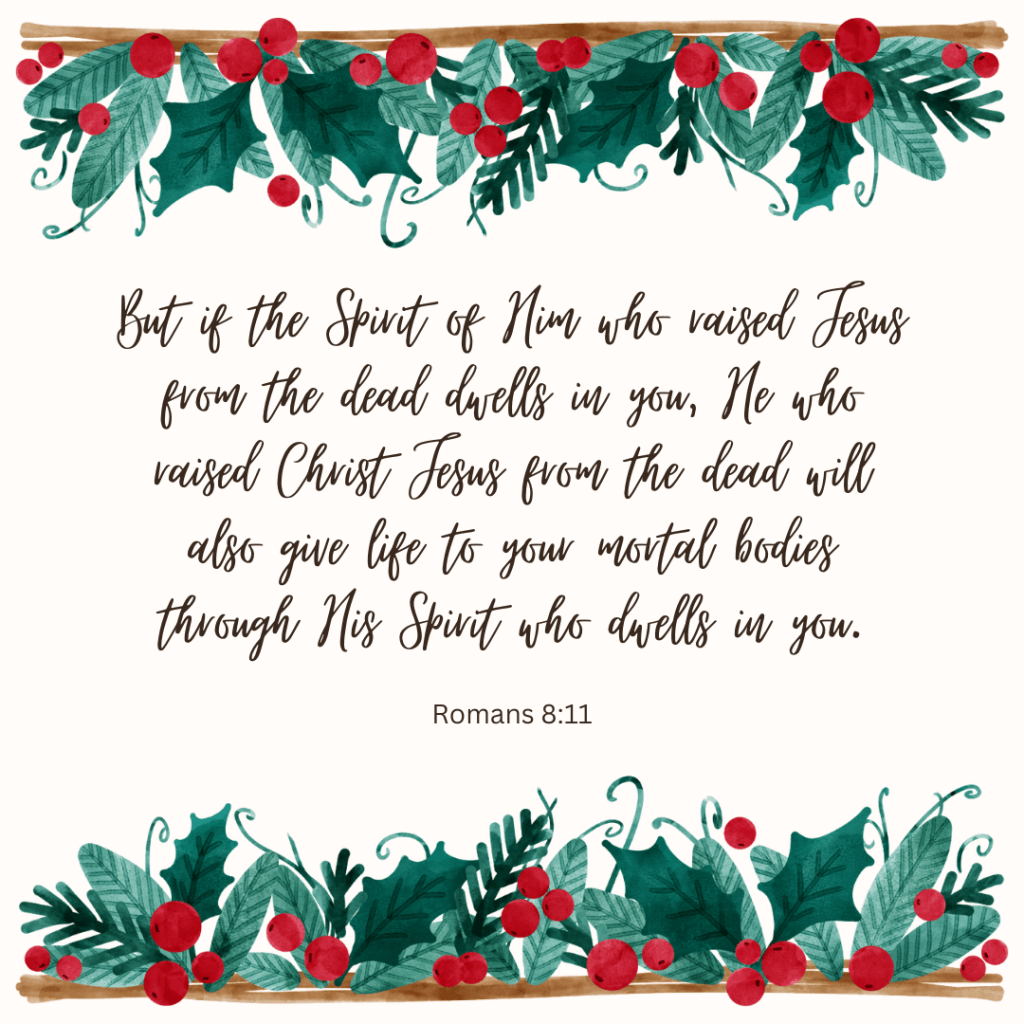 But if the Spirit of Him who raised Jesus
from the dead dwells in you, He who
raised Christ Jesus from the dead will
also give life to your mortal bodies
through His Spirit who dwells in you.
Romans 8:11